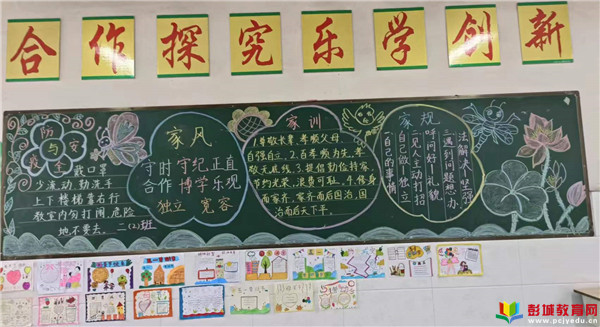 合作探究乐学创新
防
与
安
全
戴口罩
少流动 勤洗手
上下楼梯靠右行
教室内勿打闹,危险
地不要去。二(2)班
家风
守时 守纪 正直
合作 博学 乐观
独立 宽容
家训
1.尊敬长辈,孝顺父母,
自强自立。2.百孝顺为先,孝
敬无底线。3.提倡勤俭持家
节约光荣,浪费可耻。4.修身
而家齐,家齐而后国治,国
治而后天下平。
家规
1自己的事情
自己做—独立
二见人主动打招
呼问好—礼貌
三遇到问题想办
法解决—坚强
彭城教育网
www.pcjyedu.cn